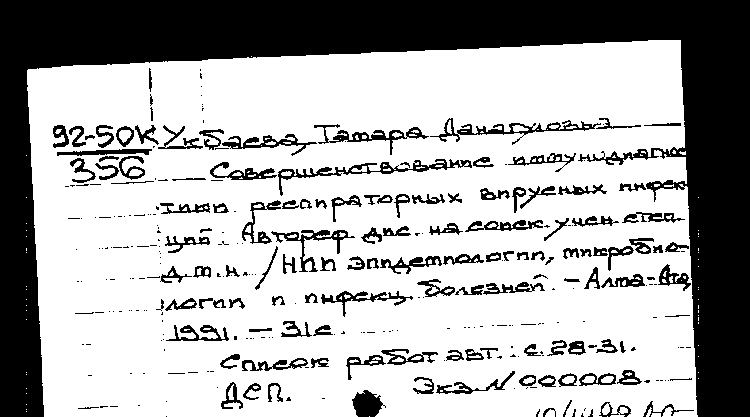 92-50К Укбаева, Тамара Данагуловна
356 Совершенствование иммунодиагнос
тики респираторных вирусных инфек
ций: Автореф дис. на соиск. учен степ.
д.м.н. / НИИ эпидемиологии, микробио-
логии и инфекц. болезней. - Алма-Ата,
1991. - 31с.
Список работ авт.: с. 28-31.
ДСП. Экз. N 000008.